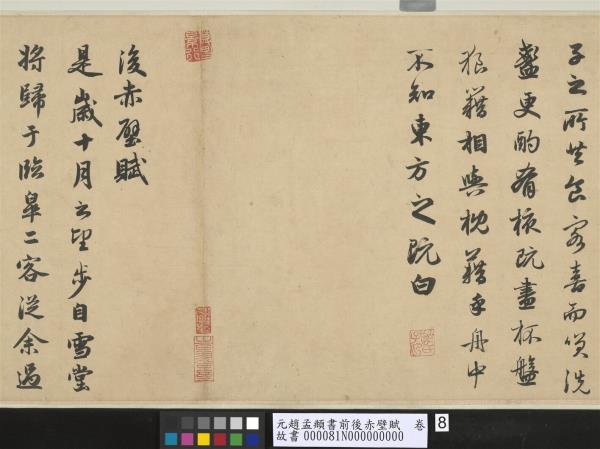 子之所共食客喜而笑洗
盞更酌肴核既盡杯盤
狼藉相與枕藉乎舟中
不知東方之既白
後赤壁賦
是歲十月之望步自雪堂
將歸于臨皋二客從余過
元趙孟頫書前後赤壁賦 卷
故書 000081N000000000
8